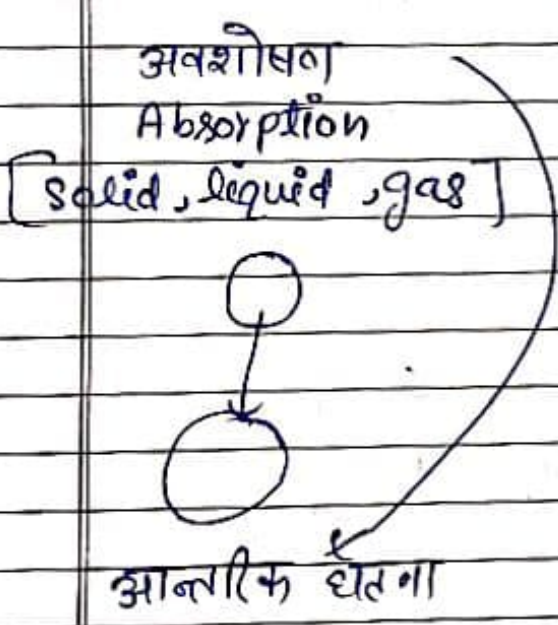 अवशोषण
Absorption
[solid, liquid, gas]
आन्तरिक घटना